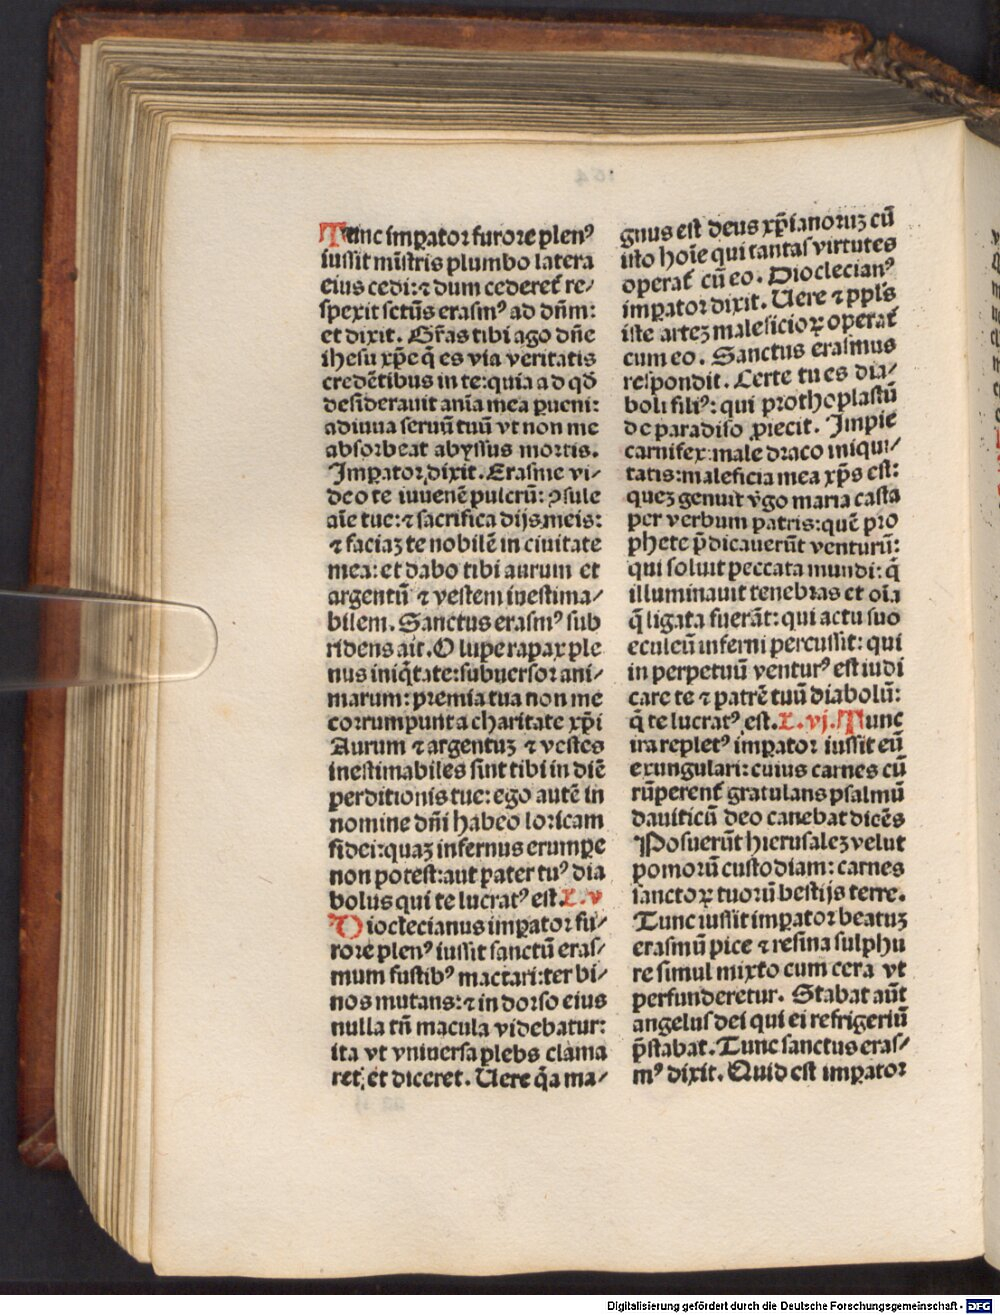 Tunc imꝑator furore plenꝰ
iussit mīstris plumbo latera
eius cedi: ⁊ dum cederet̄ re⸗
spexit sctūs erasmꝰ ad dn̄m:
et dixit. Gr̄as tibi ago dn̄e
ihesu xp̄e q̄ es via veritatis
credētibus in te: quia ad qd̄
desiderauit anīa mea ꝑueni:
adiuua seruū tuū vt non me
absorbeat abyssus mortis.
Imꝑator dixit. Erasme vi⸗
deo te iuuenē pulcrū: ↄsule
aīe tue: ⁊ sacrifica dijs meis:
⁊ faciaꝫ te nobilē in ciuitate
mea: et dabo tibi aurum et
argentū ⁊ vestem inestima⸗
bilem. Sanctus erasmꝰ sub
ridens ait. O lupe rapax ple
nus iniq̄tate: subuersor ani⸗
marum: premia tua non me
corrumpunt a charitate xp̄i
Aurum ⁊ argentuꝫ ⁊ vestes
inestimabiles sint tibi in diē
perditionis tue: ego autē in
nomine dn̄i habeo loricam
fidei: quaꝫ infernus erumpe
non potest: aut pater tuꝰ dia
bolus qui te lucratꝰ est. L. v
Dioclecianus imꝑator fu⸗
rore plenꝰ iussit sanctū eras⸗
mum fustibꝰ mactari: ter bi⸗
nos mutans: ⁊ in dorso eius
nulla tn̄ macula videbatur:
ita vt vniuersa plebs clama
ret, et diceret. Uere q̄a ma⸗
gnus est deus xp̄ianoruꝫ cū
isto hoīe qui tantas virtutes
operat̄ cū eo. Dioclecianꝰ
imꝑator dixit. Uere ⁊ ppl̄s
iste artez maleficioꝝ operat̄
cum eo. Sanctus erasmus
respondit. Certe tu es dia⸗
boli filiꝰ: qui prothoplastū
de paradiso ꝓiecit. Impie
carnifex: male draco iniqui⸗
tatis: maleficia mea xp̄s est:
quez genuit v̄go maria casta
per verbum patris: quē pro
phete p̄dicauerūt venturū:
qui soluit peccata mundi: q̄
illuminauit tenebras et oīa
q̄ ligata fuerāt: qui actu suo
eculeū inferni percussit: qui
in perpetuū venturꝰ est iudi
care te ⁊ patrē tuū diabolū:
q̄ te lucratꝰ est. L. vj. Tunc
ira repletꝰ imꝑator iussit eū
exungulari: cuius carnes cū
rūperent̄ gratulans psalmū
dauiticū deo canebat dicēs
Posuerūt hierusaleꝫ velut
pomorū custodiam: carnes
sanctoꝝ tuorū bestijs terre.
Tunc iussit imꝑator beatuꝫ
erasmū pice ⁊ resina sulphu
re simul mixto cum cera vt
perfunderetur. Stabat aūt
angelus dei qui ei refrigeriū
p̄stabat. Tunc sanctus eras⸗
mꝰ dixit. Quid est imꝑator
Digitalisierung gefördert durch die Deutsche Forschungsgemeinschaft - DFG